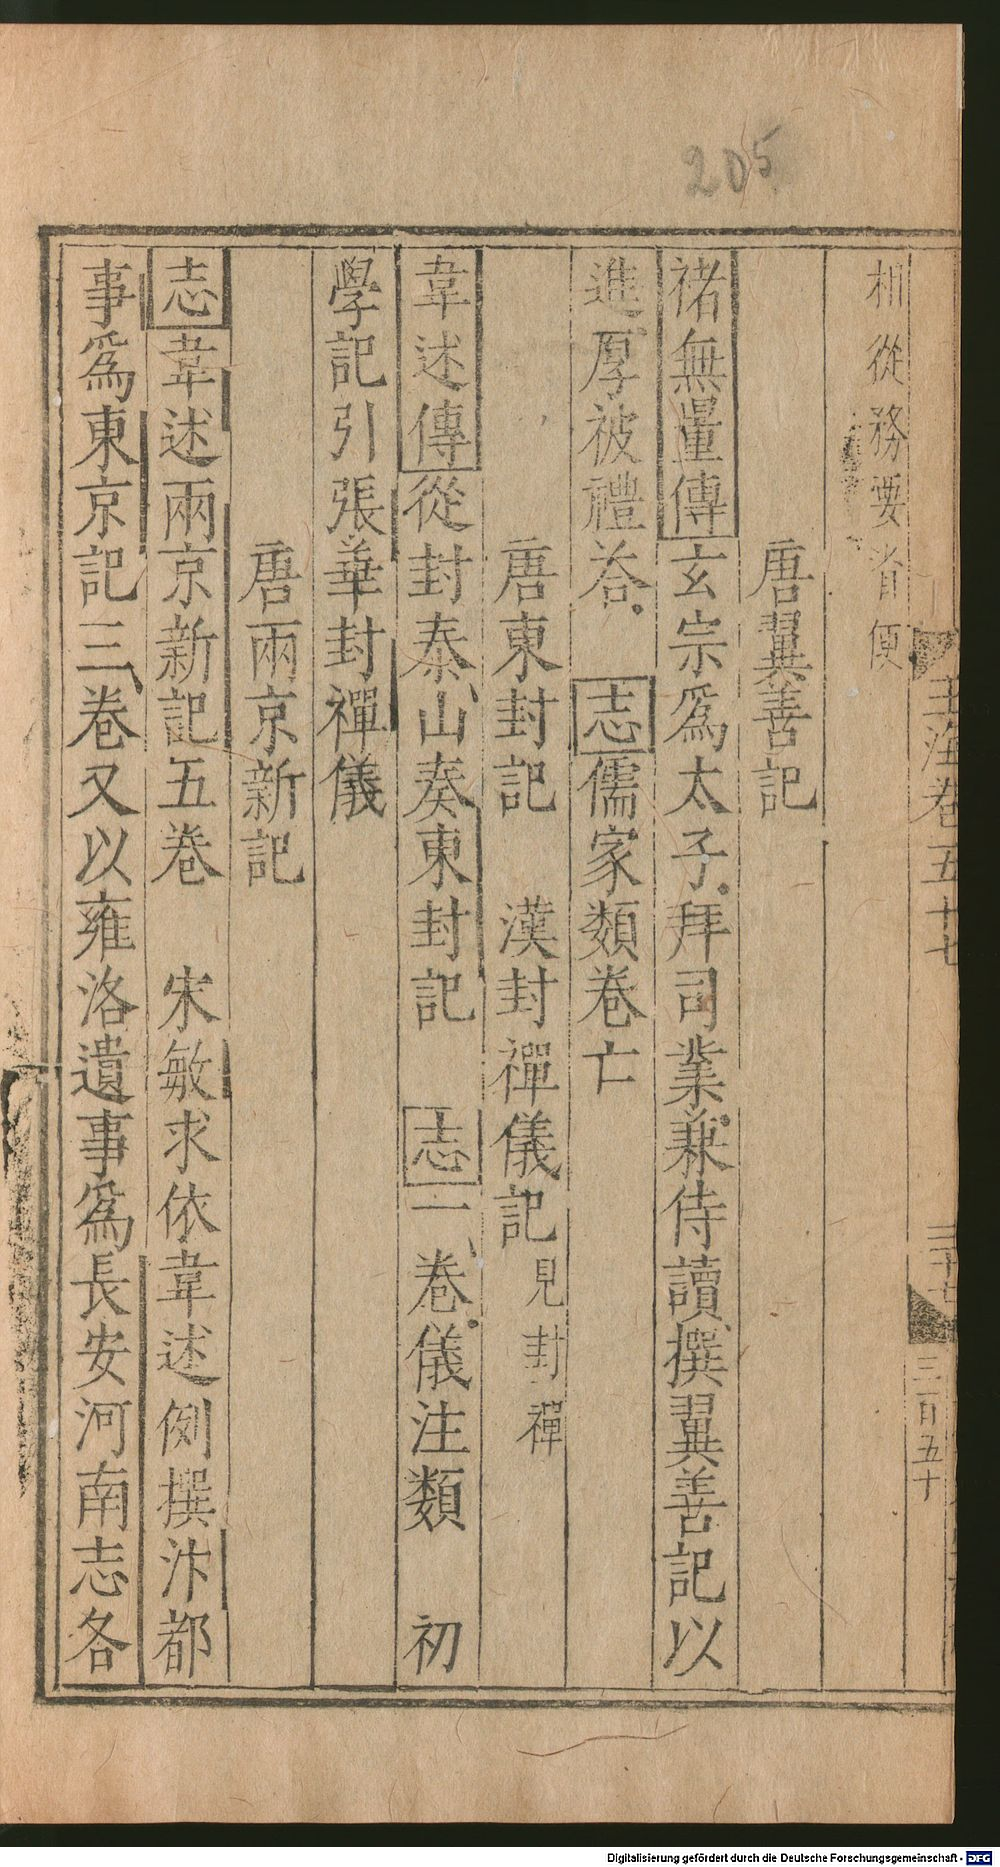 205
相從務要省便
唐翼善記
褚無量傳玄宗爲太子拜司業兼侍讀撰翼善記以
進厚被禮荅 志儒家類卷亡
唐東封記 漢封禪儀記見封禪
韋述傳從封泰山奏東封記 志一卷儀注類 初
學記引張華封禪儀
唐兩京新記
志韋述兩京新記五卷 宋敏求依韋述例撰汴都
事爲東京記三卷又以雍洛遺事爲長安河南志各
玉海卷五十七
三百五十
Digitalisierung gefördert durch die Deutsche Forschungsgemeinschaft - DFG